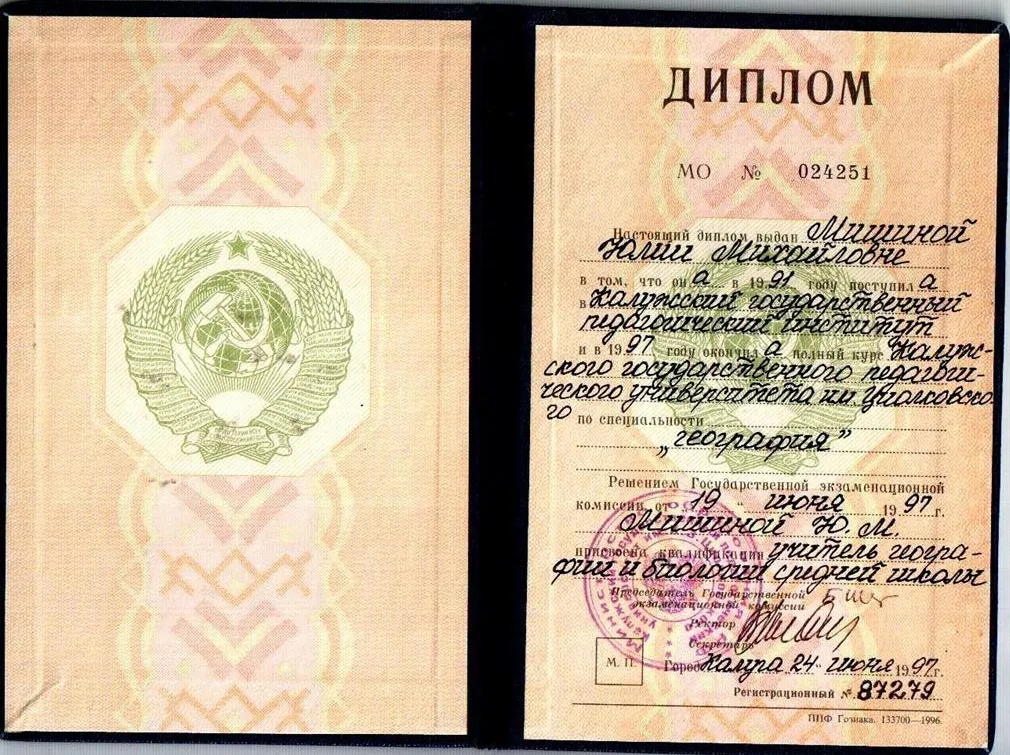 ДИПЛОМ
МО № 024251
Настоящий диплом выдан Мишиной
Юлии Михайловне
в том, что она в 1991 году поступила
в Калужский государственный
педагогический институт
и в 1997 году окончила полный курс Калуж-
ского государственного педагоги-
ческого университета им. Циолковско
го
по специальности
„география”
Решением Государственной экзаменационной
комиссии от 19 июня 1997 г.
Мишиной Ю. М.
присвоена квалификация учитель геогра-
фии и биологии средней школы
Председатель Государственной
экзаменационной комиссии
Ректор
Секретарь
М. П.
Город Калуга 24 июня 1997 г.
Регистрационный № 87279
ППФ Гознака. 133700—1996.